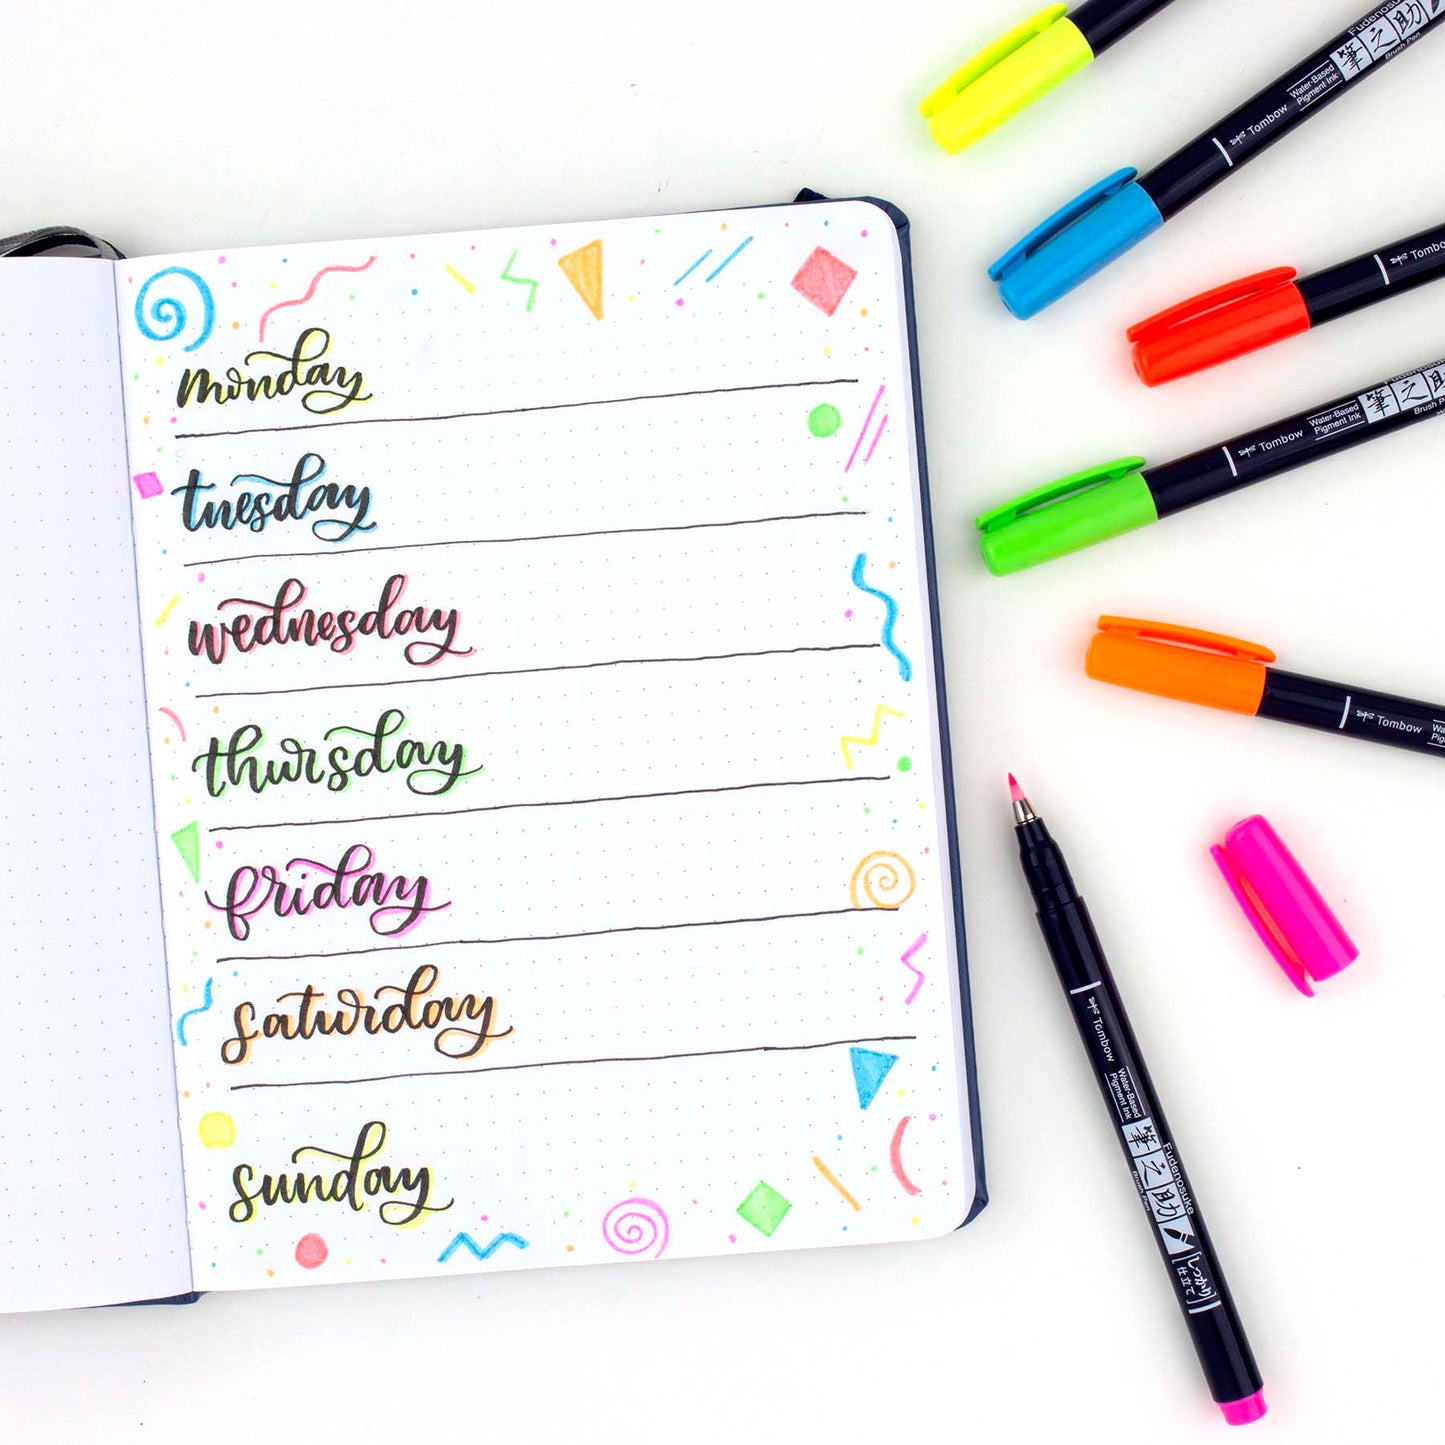 monday
tuesday
wednesday
thursday
friday
saturday
sunday
Tombow
Water-Based
Pigment Ink
筆之助
Fudenosuke
Brush Pen
Tombow
Tombow
Water-Based
Pigment Ink
筆之助
Brush Pen
Tombow
Tombow
Water-Based
Pigment Ink
筆之助
Fudenosuke
Brush Pen
しっかり